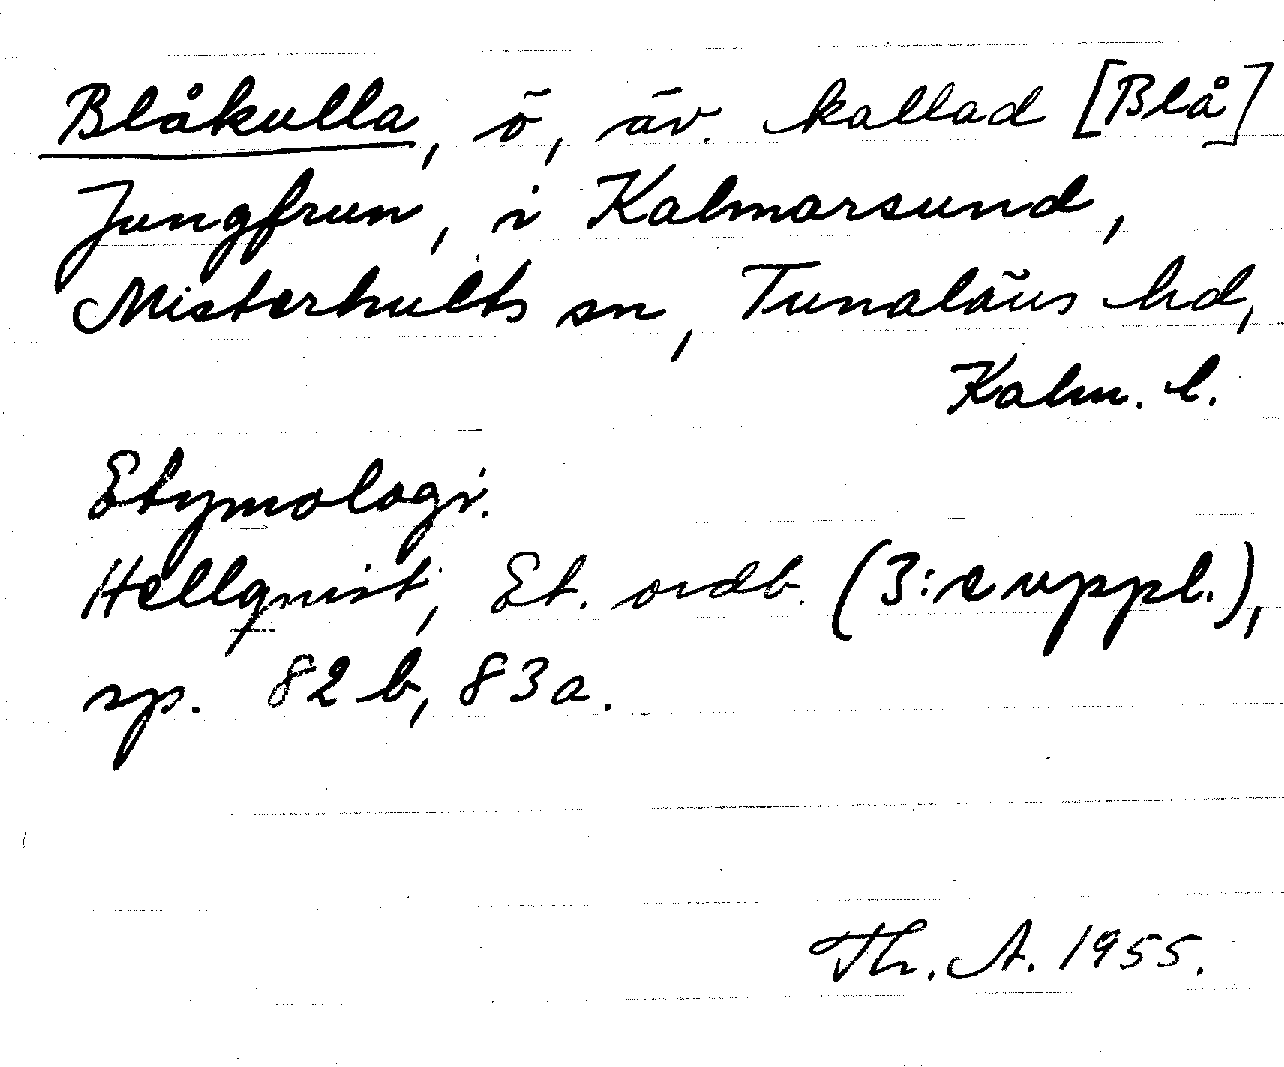 Blåkulla, ö, äv. kallad [Blå]
Jungfrun, i Kalmarsund,
Misterhults sn, Tunaläns hd,
Kalm. l.
Etymologi.
Hellquist, Et. ordb. (3:e uppl.),
sp. 82 b, 83a.
Th. A. 1955.